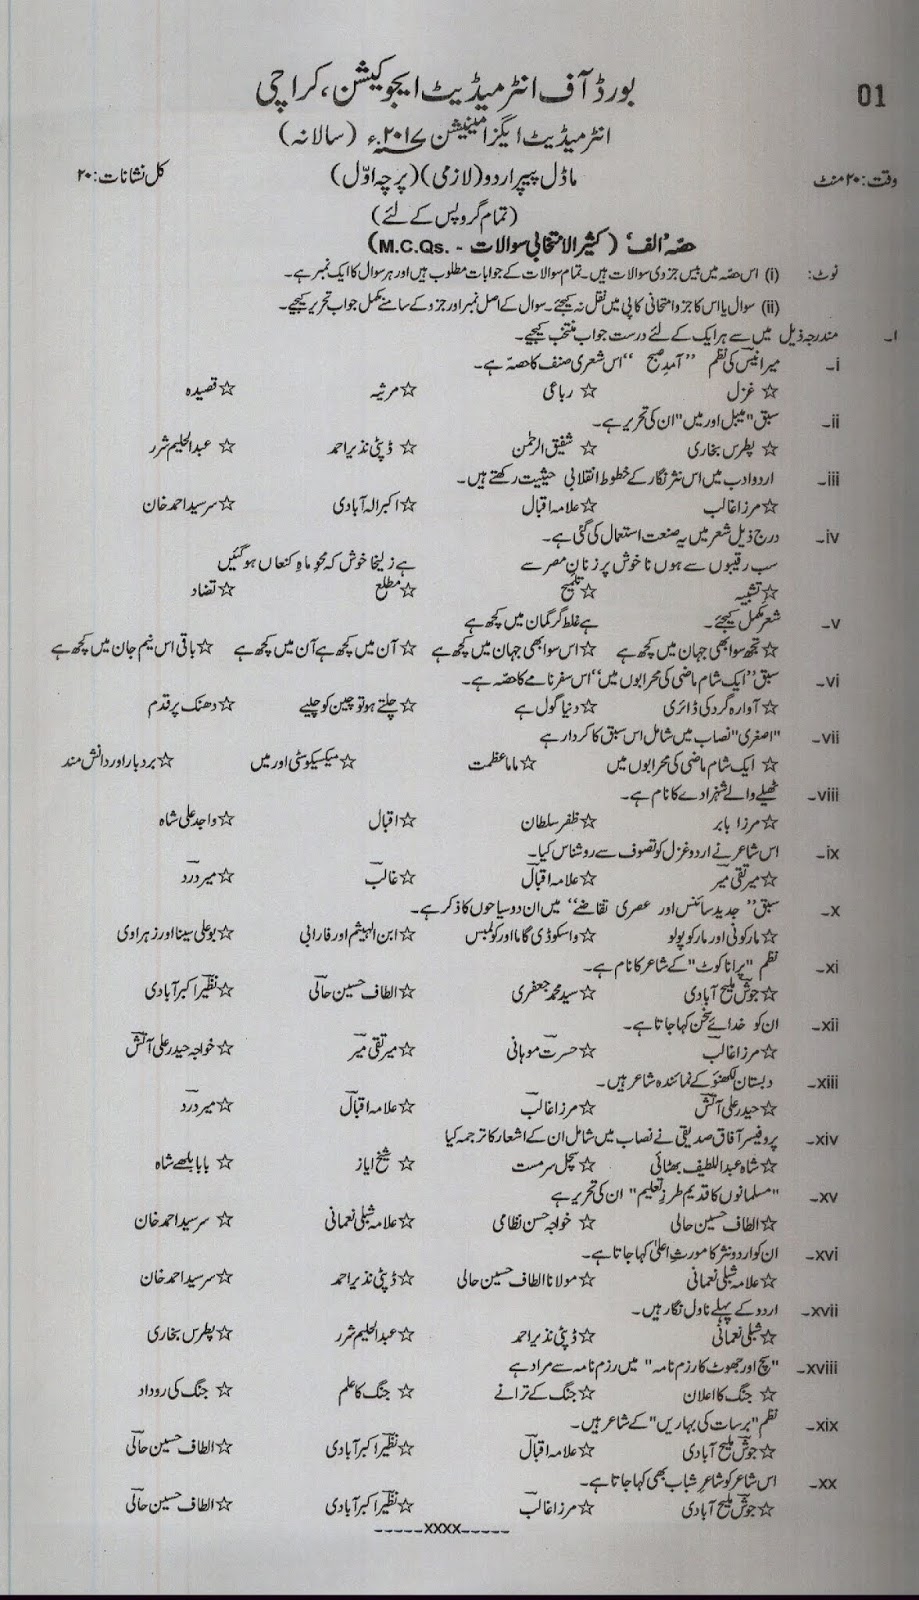 01
بورڈ آف انٹرمیڈیٹ ایجوکیشن، کراچی
انٹرمیڈیٹ ایگزامینیشن ۲۰۱۷ء (سالانہ)
وقت: ۲۰ منٹ ماڈل پیپر اردو (لازمی) (پرچہ اوّل) کل نشانات: ۲۰
(تمام گروپس کے لئے)
حصّہ 'الف' (کثیر الانتخابی سوالات - M.C.Qs.)
نوٹ: (i) اس حصّہ میں بیس جزوی سوالات ہیں۔ تمام سوالات کے جوابات مطلوب ہیں اور ہر سوال کا ایک نمبر ہے۔
(ii) سوال یا اس کا جزو امتحانی کاپی میں نقل نہ کیجئے۔ سوال کے اصل نمبر اور جزو کے سامنے مکمل جواب تحریر کیجیے۔
۱۔ مندرجہ ذیل میں سے ہر ایک کے لئے درست جواب منتخب کیجیے۔
i۔ میر انیسؔ کی نظم "آمدِ صبح" اس شعری صنف کا حصّہ ہے۔
☆ غزل ☆ رباعی ☆ مرثیہ ☆ قصیدہ
ii۔ سبق "میبل اور میں" ان کی تحریر ہے۔
☆ پطرس بخاری ☆ شفیق الرحمٰن ☆ ڈپٹی نذیر احمد ☆ عبدالحلیم شرر
iii۔ اردو ادب میں اس نثر نگار کے خطوط انقلابی حیثیت رکھتے ہیں۔
☆ مرزا غالب ☆ علامہ اقبال ☆ اکبر الہ آبادی ☆ سر سید احمد خان
iv۔ درج ذیل شعر میں یہ صنعت استعمال کی گئی ہے۔
سب رقیبوں سے ہوں ناخوش پر زنانِ مصر سے ہے زلیخا خوش کہ محوِ ماہِ کنعاں ہو گئیں
☆ تشبیہ ☆ تلمیح ☆ مطلع ☆ تضاد
v۔ شعر مکمل کیجئے۔ ہے غلط گر گمان میں کچھ ہے
☆ تجھ سوا بھی جہان میں کچھ ہے ☆ اس سوا بھی جہان میں کچھ ہے ☆ آن میں کچھ ہے آن میں کچھ ہے ☆ باقی اس نیم جان میں کچھ ہے
vi۔ سبق "ایک شام ماضی کی محرابوں میں" اس سفر نامے کا حصّہ ہے۔
☆ آوارہ گرد کی ڈائری ☆ دنیا گول ہے ☆ چلتے ہو تو چین کو چلیے ☆ دھنک پر قدم
vii۔ "اصغری" نصاب میں شامل اس سبق کا کردار ہے
☆ ایک شام ماضی کی محرابوں میں ☆ ماما عظمت ☆ میکسیکو سٹی اور میں ☆ بردبار اور دانش مند
viii۔ ٹھیلے والے شہزادے کا نام ہے۔
☆ مرزا بابر ☆ ظفر سلطان ☆ اقبال ☆ واجد علی شاہ
ix۔ اس شاعر نے اردو غزل کو تصوف سے روشناس کیا۔
☆ میر تقی میرؔ ☆ علامہ اقبالؔ ☆ غالبؔ ☆ میر دردؔ
x۔ سبق "جدید سائنس اور عصری تقاضے" میں ان دو سیاحوں کا ذکر ہے۔
☆ مارکونی اور مارکوپولو ☆ واسکوڈی گاما اور کولمبس ☆ ابن الہیثم اور فارابی ☆ بو علی سینا اور زہراوی
xi۔ نظم "پرانا کوٹ" کے شاعر کا نام ہے۔
☆ جوشؔ ملیح آبادی ☆ سید محمد جعفری ☆ الطاف حسین حالیؔ ☆ نظیرؔ اکبر آبادی
xii۔ ان کو خدائے سخن کہا جاتا ہے۔
☆ مرزا غالبؔ ☆ حسرتؔ موہانی ☆ میر تقی میرؔ ☆ خواجہ حیدر علی آتشؔ
xiii۔ دبستانِ لکھنؤ کے نمائندہ شاعر ہیں۔
☆ حیدر علی آتشؔ ☆ مرزا غالبؔ ☆ علامہ اقبالؔ ☆ میر دردؔ
xiv۔ پروفیسر آفاق صدیقی نے نصاب میں شامل ان کے اشعار کا ترجمہ کیا
☆ شاہ عبداللطیف بھٹائی ☆ سچل سرمست ☆ شیخ ایاز ☆ بابا بلھے شاہ
xv۔ "مسلمانوں کا قدیم طرزِ تعلیم" ان کی تحریر ہے
☆ الطاف حسین حالی ☆ خواجہ حسن نظامی ☆ علامہ شبلی نعمانی ☆ سر سید احمد خان
xvi۔ ان کو اردو نثر کا مورثِ اعلیٰ کہا جاتا ہے۔
☆ علامہ شبلی نعمانی ☆ مولانا الطاف حسین حالی ☆ ڈپٹی نذیر احمد ☆ سر سید احمد خان
xvii۔ اردو کے پہلے ناول نگار ہیں۔
☆ شبلی نعمانی ☆ ڈپٹی نذیر احمد ☆ عبدالحلیم شرر ☆ پطرس بخاری
xviii۔ "سچ اور جھوٹ کا رزم نامہ" میں رزم نامہ سے مراد ہے
☆ جنگ کا اعلان ☆ جنگ کے ترانے ☆ جنگ کا علم ☆ جنگ کی روداد
xix۔ نظم "برسات کی بہاریں" کے شاعر ہیں۔
☆ جوشؔ ملیح آبادی ☆ علامہ اقبالؔ ☆ نظیرؔ اکبر آبادی ☆ الطاف حسین حالیؔ
xx۔ اس شاعر کو شاعرِ شباب بھی کہا جاتا ہے۔
☆ جوشؔ ملیح آبادی ☆ مرزا غالبؔ ☆ نظیرؔ اکبر آبادی ☆ الطاف حسین حالیؔ
-----xxxx-----